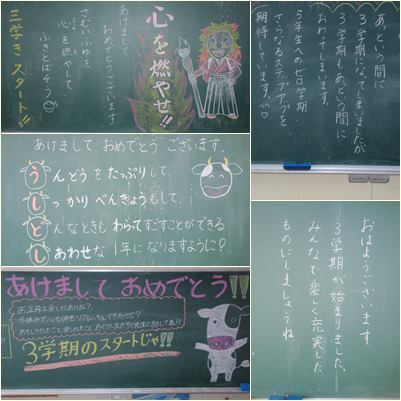 心を燃やせ!!
あけまして
おめでとうございます
さむいふゆを
心を燃やして
ふきとばそう
三学き スタート!!
あけまして おめでとうございます。
うんどうを たっぷりして、
しっかり べんきょうもして、
どんなときも わらってすごすことができる
しあわせな 1年に なりますように♡
あけまして おめでとう!!
お正月は楽しかったかな?
3学期のスタートじゃ!!
あという間に
3学期になってしまいましたが
3学期もあっという間に
おわってしまいます。
5年生へのゼロ学期
さらなるステップアップを
期待しています
おはようございます
3学期が始まりました。
みんなで楽しく充実した
ものにしましょうね